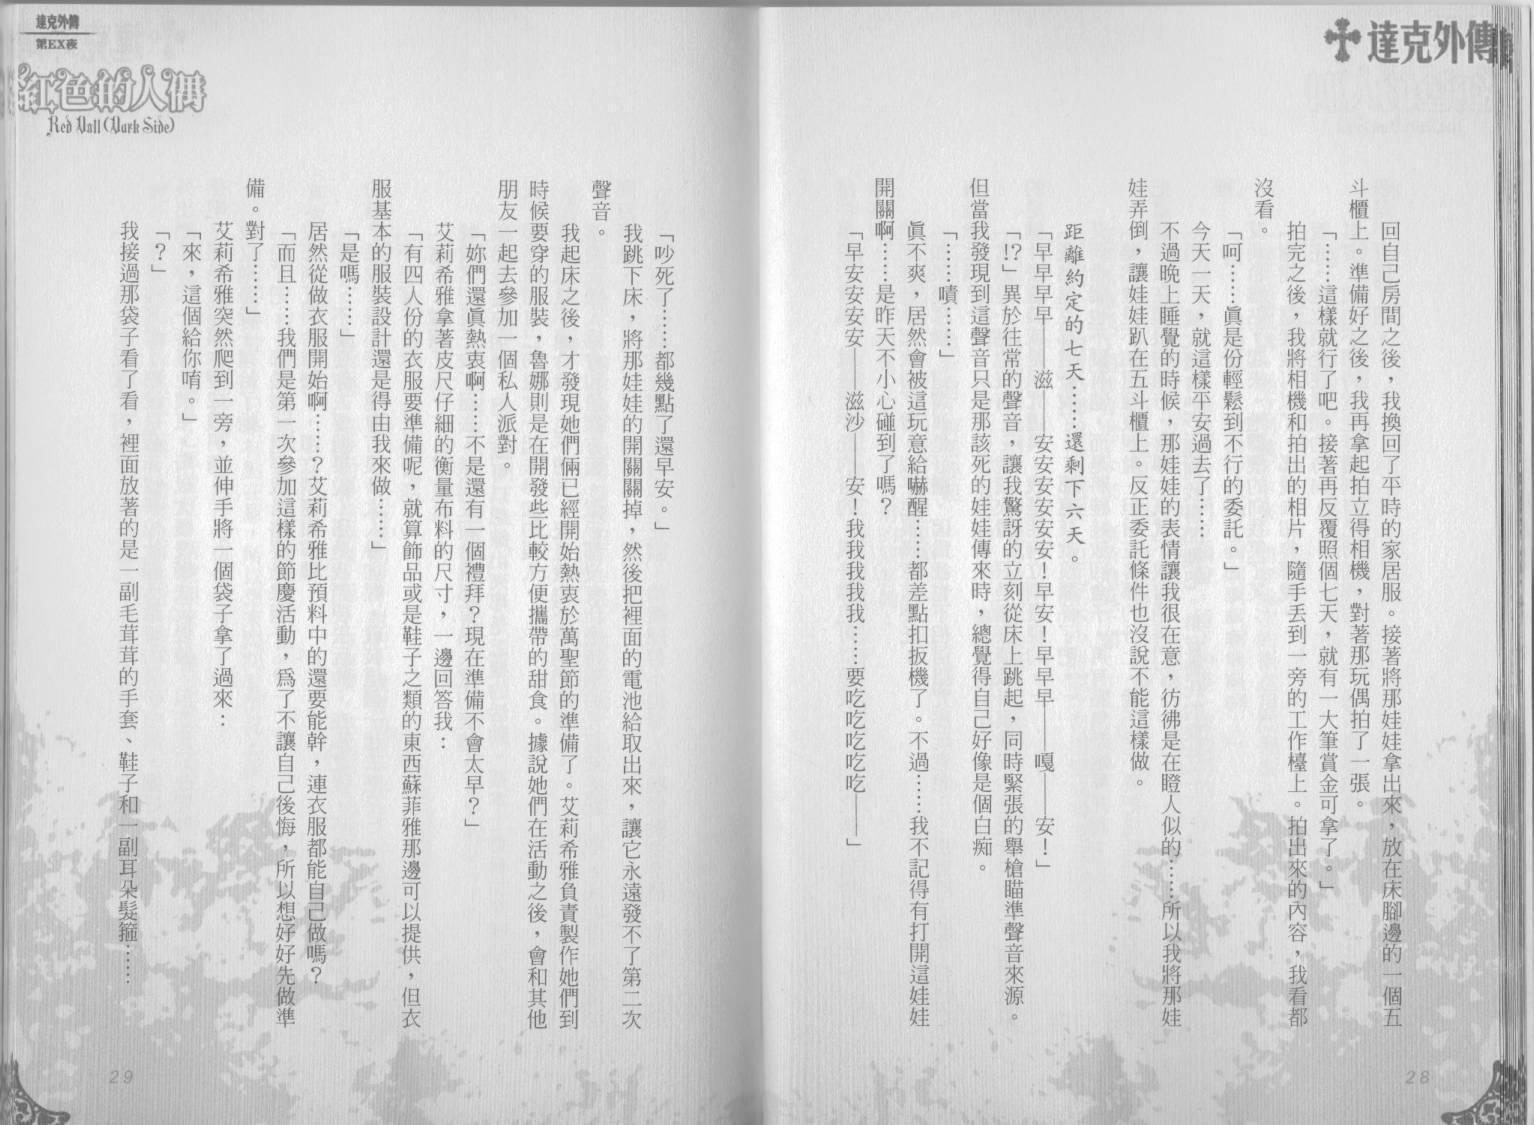 達克外傳
回自己房間之後，我換回了平時的家居服。接著將那娃娃拿出來，放在床腳邊的一個五
斗櫃上。準備好之後，我再拿起拍立得相機，對著那玩偶拍了一張。
「……這樣就行了吧。接著再反覆照個七天，就有一大筆賞金可拿了。」
拍完之後，我將相機和拍出的相片，隨手丟到一旁的工作檯上。拍出來的內容，我看都
沒看。
「呵……眞是份輕鬆到不行的委託。」
今天一天，就這樣平安過去了……
不過晚上睡覺的時候，那娃娃的表情讓我很在意，彷彿是在瞪人似的……所以我將那娃
娃弄倒，讓娃娃趴在五斗櫃上。反正委託條件也沒說不能這樣做。
距離約定的七天……還剩下六天。
「早早早早——滋——安安安安安安！早安！早早早——嘎——安！」
「!?」異於往常的聲音，讓我驚訝的立刻從床上跳起，同時緊張的舉槍瞄準聲音來源。
但當我發現到這聲音只是那該死的娃娃傳來時，總覺得自己好像是個白痴。
「……嘖……」
眞不爽，居然會被這玩意給嚇醒……都差點扣扳機了。不過……我不記得有打開這娃娃
開關啊……是昨天不小心碰到了嗎？
「早安安安安——滋沙——安！我我我我我……要吃吃吃吃吃——」
28
達克外傳
第EX夜
紅色的人偶
Red Doll (Dark Side)
「吵死了……都幾點了還早安。」
我跳下床，將那娃娃的開關關掉，然後把裡面的電池給取出來，讓它永遠發不了第二次
聲音。
我起床之後，才發現她們倆已經開始熱衷於萬聖節的準備了。艾莉希雅負責製作她們到
時候要穿的服裝，魯娜則是在開發些比較方便攜帶的甜食。據說她們在活動之後，會和其他
朋友一起去參加一個私人派對。
「妳們還眞熱衷啊……不是還有一個禮拜？現在準備不會太早？」
艾莉希雅拿著皮尺仔細的衡量布料的尺寸，一邊回答我：
「有四人份的衣服要準備呢，就算飾品或是鞋子之類的東西蘇菲雅那邊可以提供，但衣
服基本的服裝設計還是得由我來做……」
「是嗎……」
居然從做衣服開始啊……？艾莉希雅比預料中的還要能幹，連衣服都能自己做嗎？
「而且……我們是第一次參加這樣的節慶活動，爲了不讓自己後悔，所以想好好先做準
備。對了……」
艾莉希雅突然爬到一旁，並伸手將一個袋子拿了過來：
「來，這個給你唷。」
「？」
我接過那袋子看了看，裡面放著的是一副毛茸茸的手套、鞋子和一副耳朵髮箍……
29